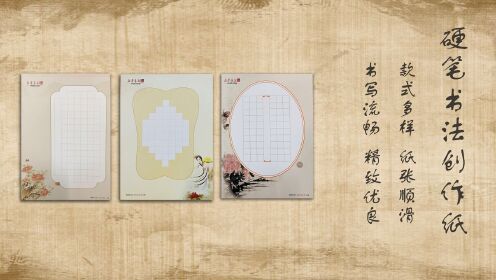 硬笔书法创作纸
款式多样 纸张顺滑
书写流畅 精致优良